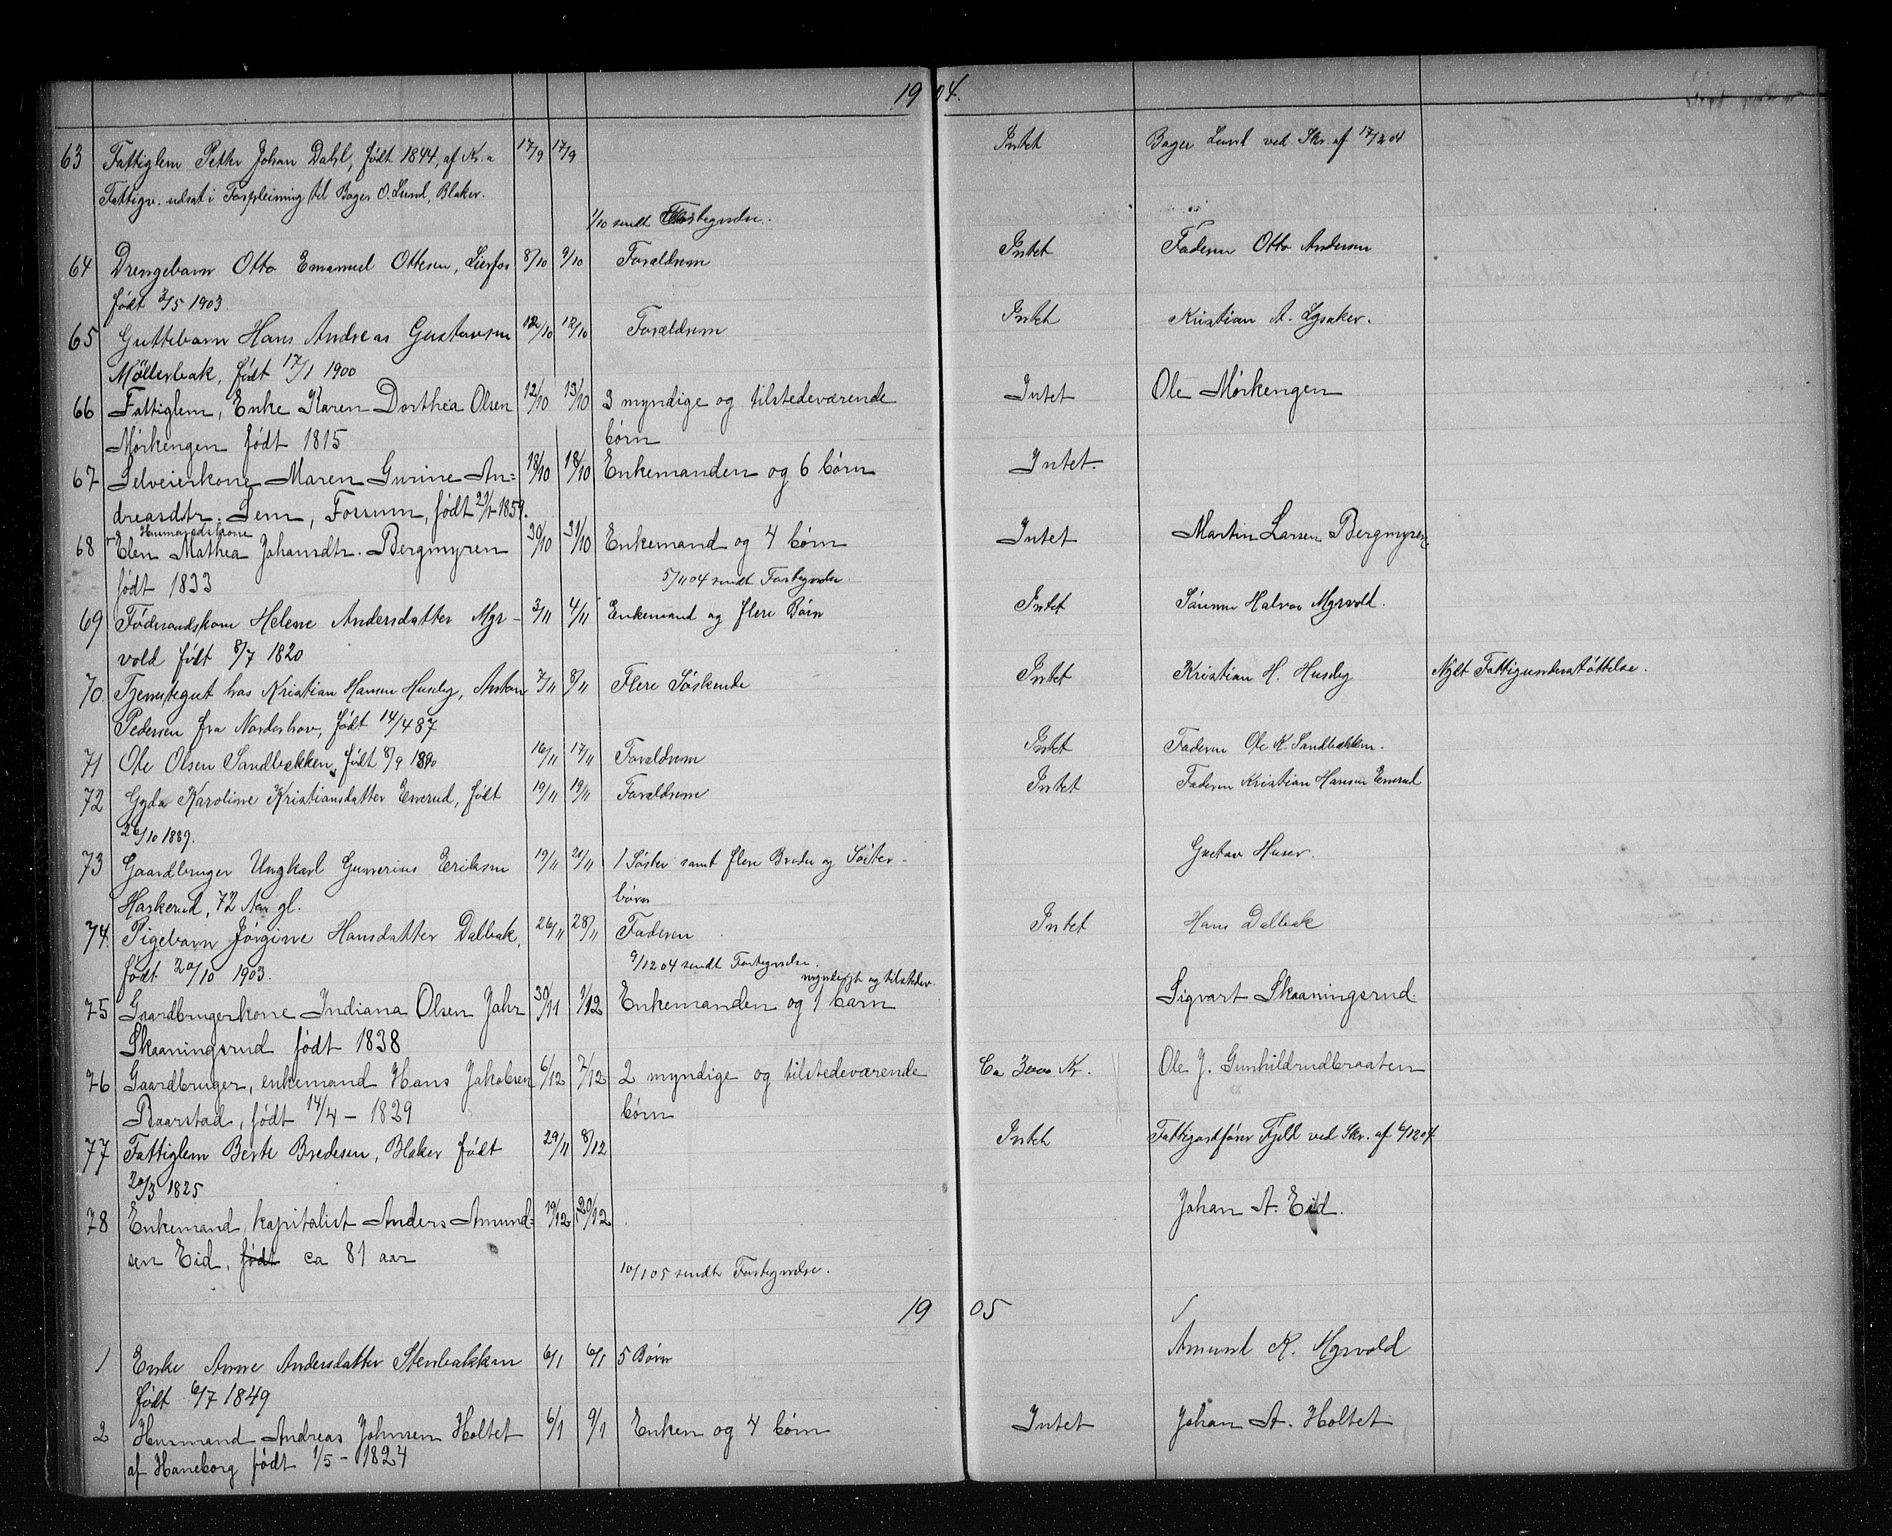 1904.
63 Fattiglem Petter Johan Dahl, født 1844, af Kr.a 17/9 17/9 Intet Bager Lund ved Skr. af 17/2 04
Fattigv. udsat i Forpleining til Bager O. Lund, Blaker.
1/10 sendt Fortegnelse.
64 Drengebarn Otto Emanuel Ottesen, Lierfos 8/10 9/10 Forældrene Intet Faderen Otto Andersen
født 3/5 1903.
65 Guttebarn Hans Andreas Gustavsen 12/10 12/10 Forældrene Intet Kristian A. Lysaker.
Møllerbak, født 17/1 1900
66 Fattiglem, Enke Karen Dorthea Olsen 12/10 13/10 3 myndige og tilstedeværende Intet Ole Mörkengen
Mörkengen født 1815 börn
67 Selveierkone Maren Gurine An- 18/10 18/10 Enkemanden og 6 börn Intet.
dreasdtr. Sem, Fossum, født 1859.
Husmandskone
68 Elen Mathea Johansdtr. Bergmyren 30/10 31/10 Enkemand og 4 börn Intet Martin Larsen Bergmyren
født 1833 5/11 04 sendt Fortegnelse.
69 Føderaadskone Helene Andersdatter Myr- 3/11 4/11 Enkemand og flere Børn Intet Sønnen Halvor Myrvold.
vold født 8/7 1820
70 Tjenstegut hos Kristian Hansen Huseby, Anton 7/11 8/11 Flere Søskende Intet Kristian H. Huseby Nydt Fattigunderstøttelse.
Pedersen fra Norderhov, født 14/4 87
71 Ole Olsen Sandbækken, født 8/9 1890 16/11 17/11 Forældrene Intet Faderen Ole K. Sandbækken.
72 Gyda Karoline Kristiansdatter Enerud, født 19/11 19/11 Forældrene Intet Faderen Kristian Hansen Enerud
26/10 1889.
73 Gaardbruger Ungkarl Gunerius Eriksen 19/11 21/11 1 Søster samt flere Broder og Søster- Gustav Huser.
Haskerud, 72 Aar gl. børn
74. Pigebarn Jørgine Hansdatter Dalbak, 26/11 28/11 Faderen Intet Hans Dalbak
født 20/10 1903. 9/12 04 sendt Fortegnelse.
myndigt og tilstedev.
75 Gaardbrugerkone Indiana Olsen Jahr 30/11 1/12 Enkemanden og 1 barn Sigvart Skaaningsrud
Skaaningsrud født 1838
76 Gaardbruger, enkemand Hans Jakobsen 6/12 7/12 2 myndige og tilstedeværende Ca 3000 Kr. Ole J. Gunhildrudbraaten
Baarstad, født 14/4 - 1829 börn
77 Fattiglem Berte Bredesen, Blaker født 29/11 8/12 Intet Fattigordfører Fjeld ved Skr. af 6/12 04
20/3 1825
78 Enkemand, kapitalist Anders Amund- 19/12 20/12 Johan A. Eid.
sen Eid, født ca 81 aar 10/1 05 sendt Fortegnelse.
1905
1 Enke Anne Andersdatter Stenbækken 6/1 6/1 5 Børn Amund K. Myrvold
født 6/7 1849
2 Husmand Andreas Johnsen Holtet 6/1 9/1 Enken og 4 börn Intet Johan A. Holtet
af Haneborg født 1/5 - 1824